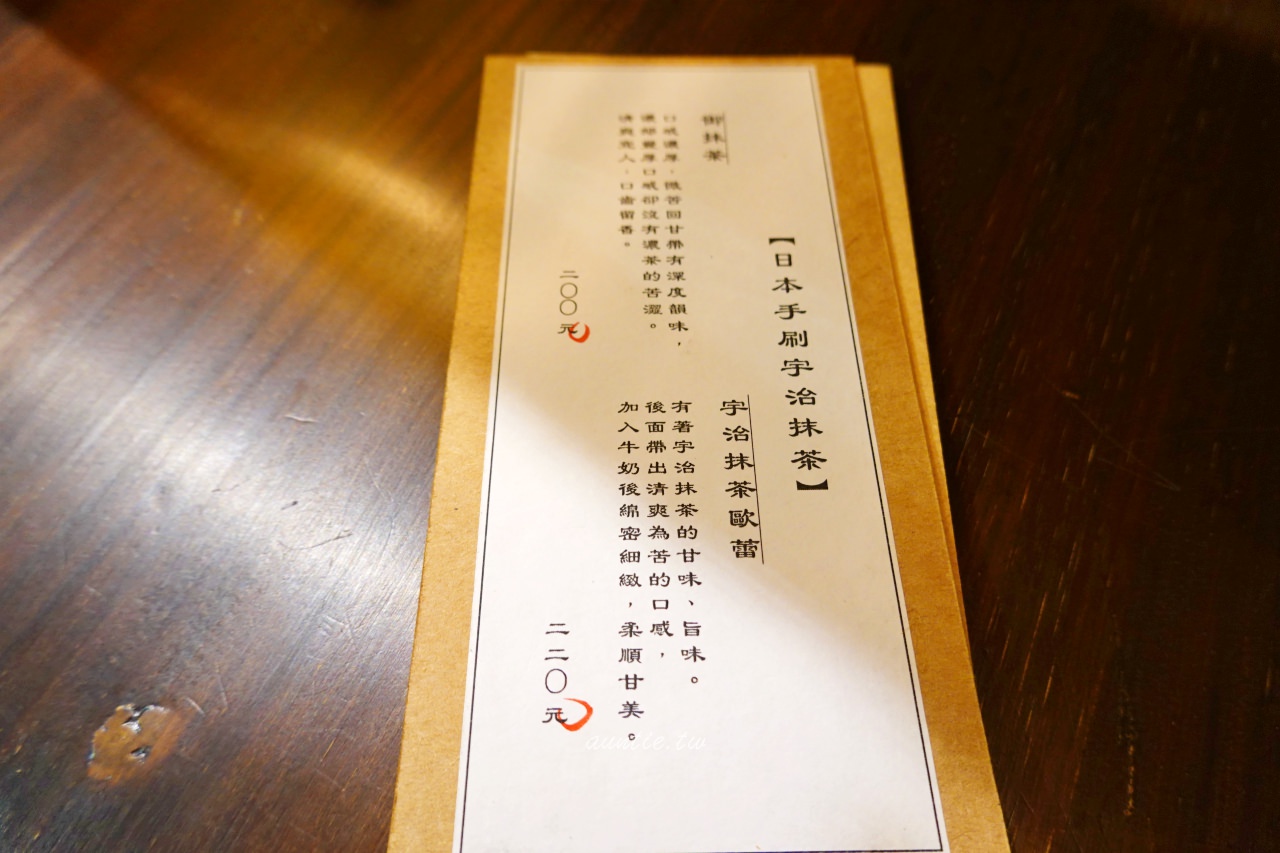 【日本手刷宇治抹茶】
御抹茶
口感濃厚，微苦回甘帶有深度韻味，
濃綠豐厚口感卻沒有濃茶的苦澀。
清爽宜人，口齒留香。
二〇〇元
宇治抹茶歐蕾
有著宇治抹茶的甘味、旨味。
後面帶出清爽為苦的口感，
加入牛奶後綿密細緻，柔順甘美。
二二〇元
auntie.tw